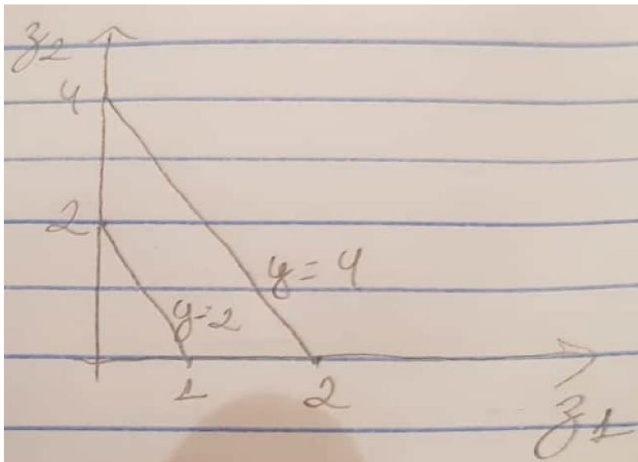 z2
4
2
y=4
y=2
1
2
z1